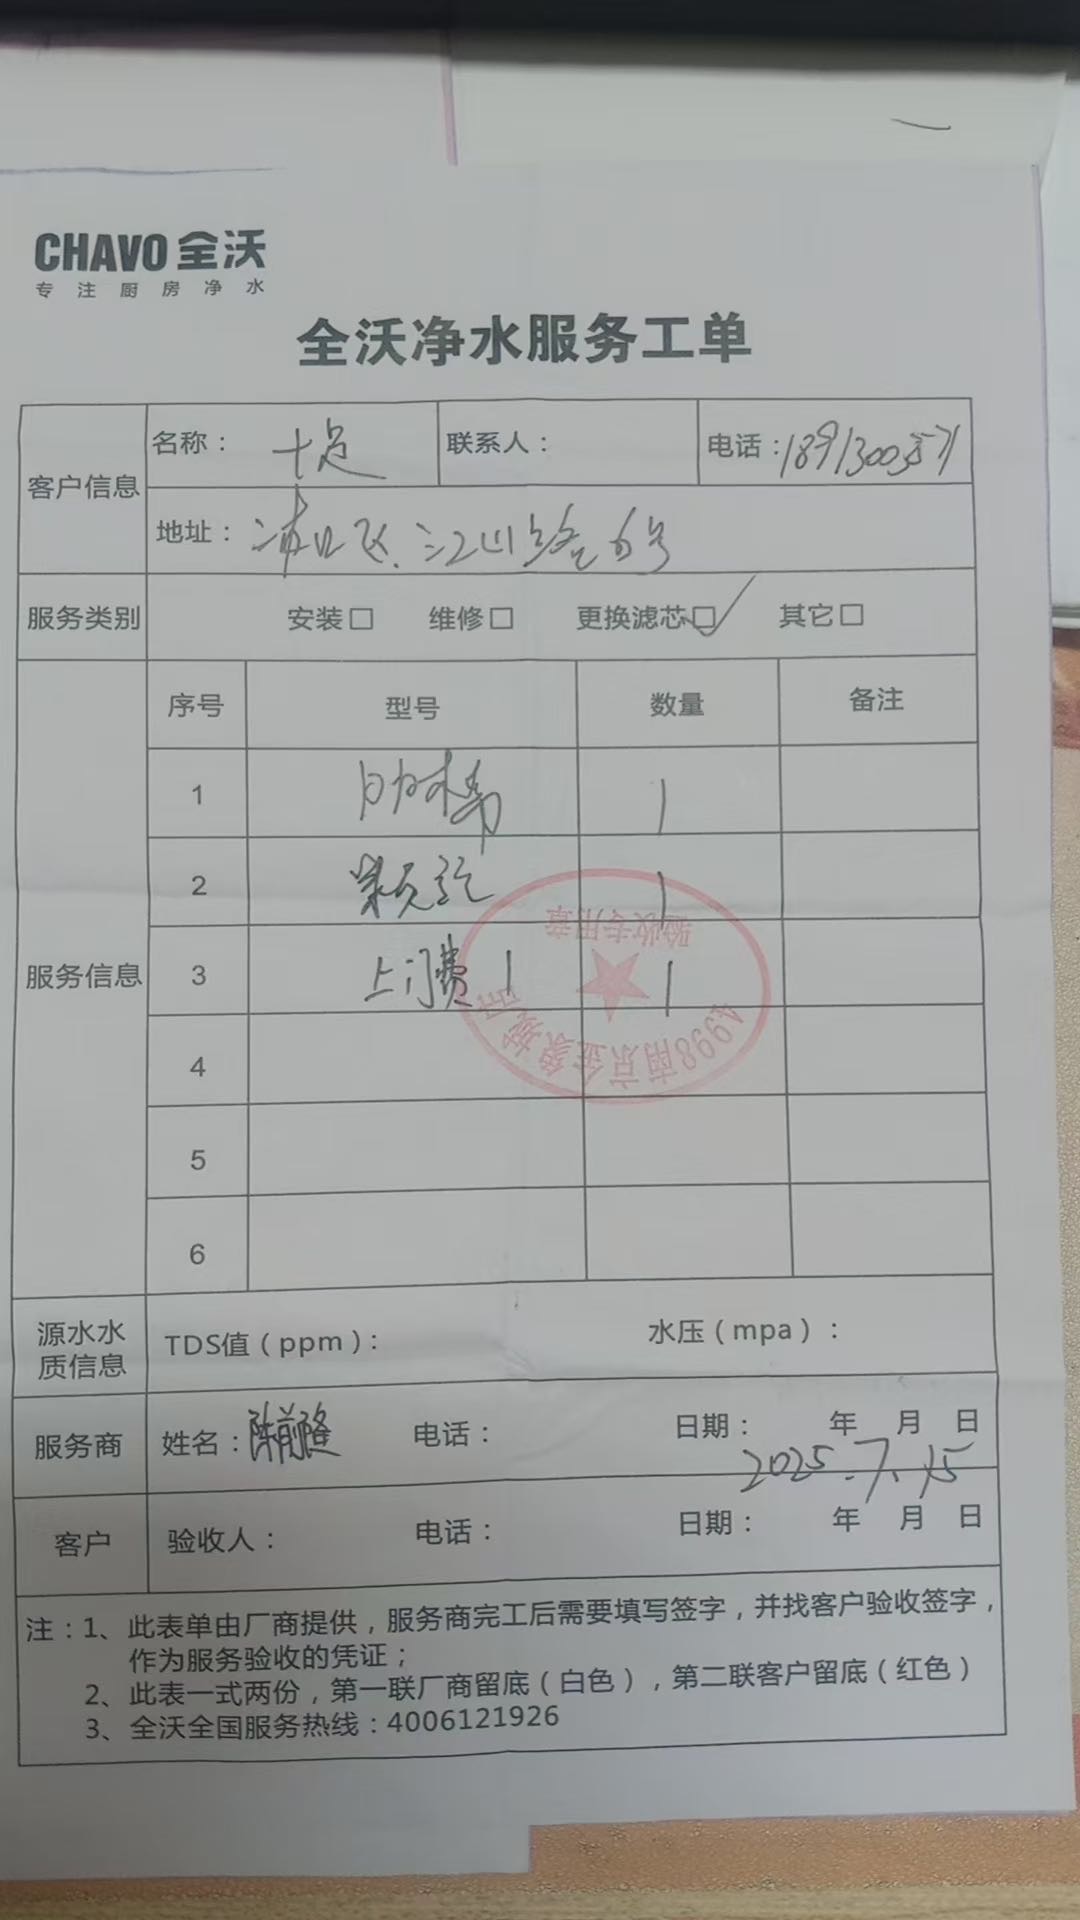 CHAVO 全沃
专注厨房净水
全沃净水服务工单
客户信息 名称：十足 联系人： 电话：18913003571
地址：浦口区江山路6号
服务类别 安装□ 维修□ 更换滤芯□✓ 其它□
服务信息 序号 型号 数量 备注
1 1
2 1
3 上门费 1 1
4
5
6
验收专用章
4998南京金象城店
源水水质信息 TDS值（ppm）： 水压（mpa）：
服务商 姓名：陈前隆 电话： 日期： 年 月 日
2025.7.15
客户 验收人： 电话： 日期： 年 月 日
注：1、此表单由厂商提供，服务商完工后需要填写签字，并找客户验收签字，
作为服务验收的凭证；
2、此表一式两份，第一联厂商留底（白色），第二联客户留底（红色）
3、全沃全国服务热线：4006121926